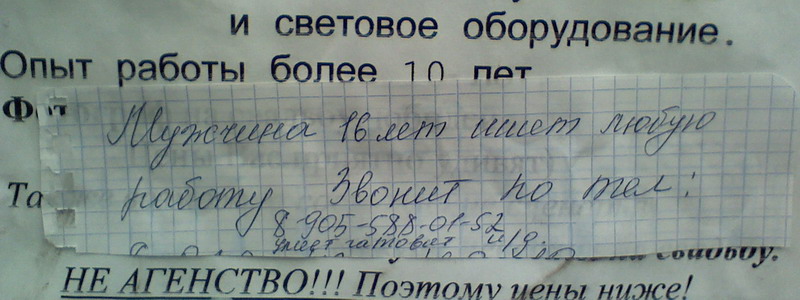 и световое оборудование.
Опыт работы более 10 лет
Фот
Мужчина 16 лет ишет любую
Та
работу Звонит по тел:
8-905-588-01-52
умеет гатовит и/д.
на свадьбу.
НЕ АГЕНСТВО!!! Поэтому цены ниже!